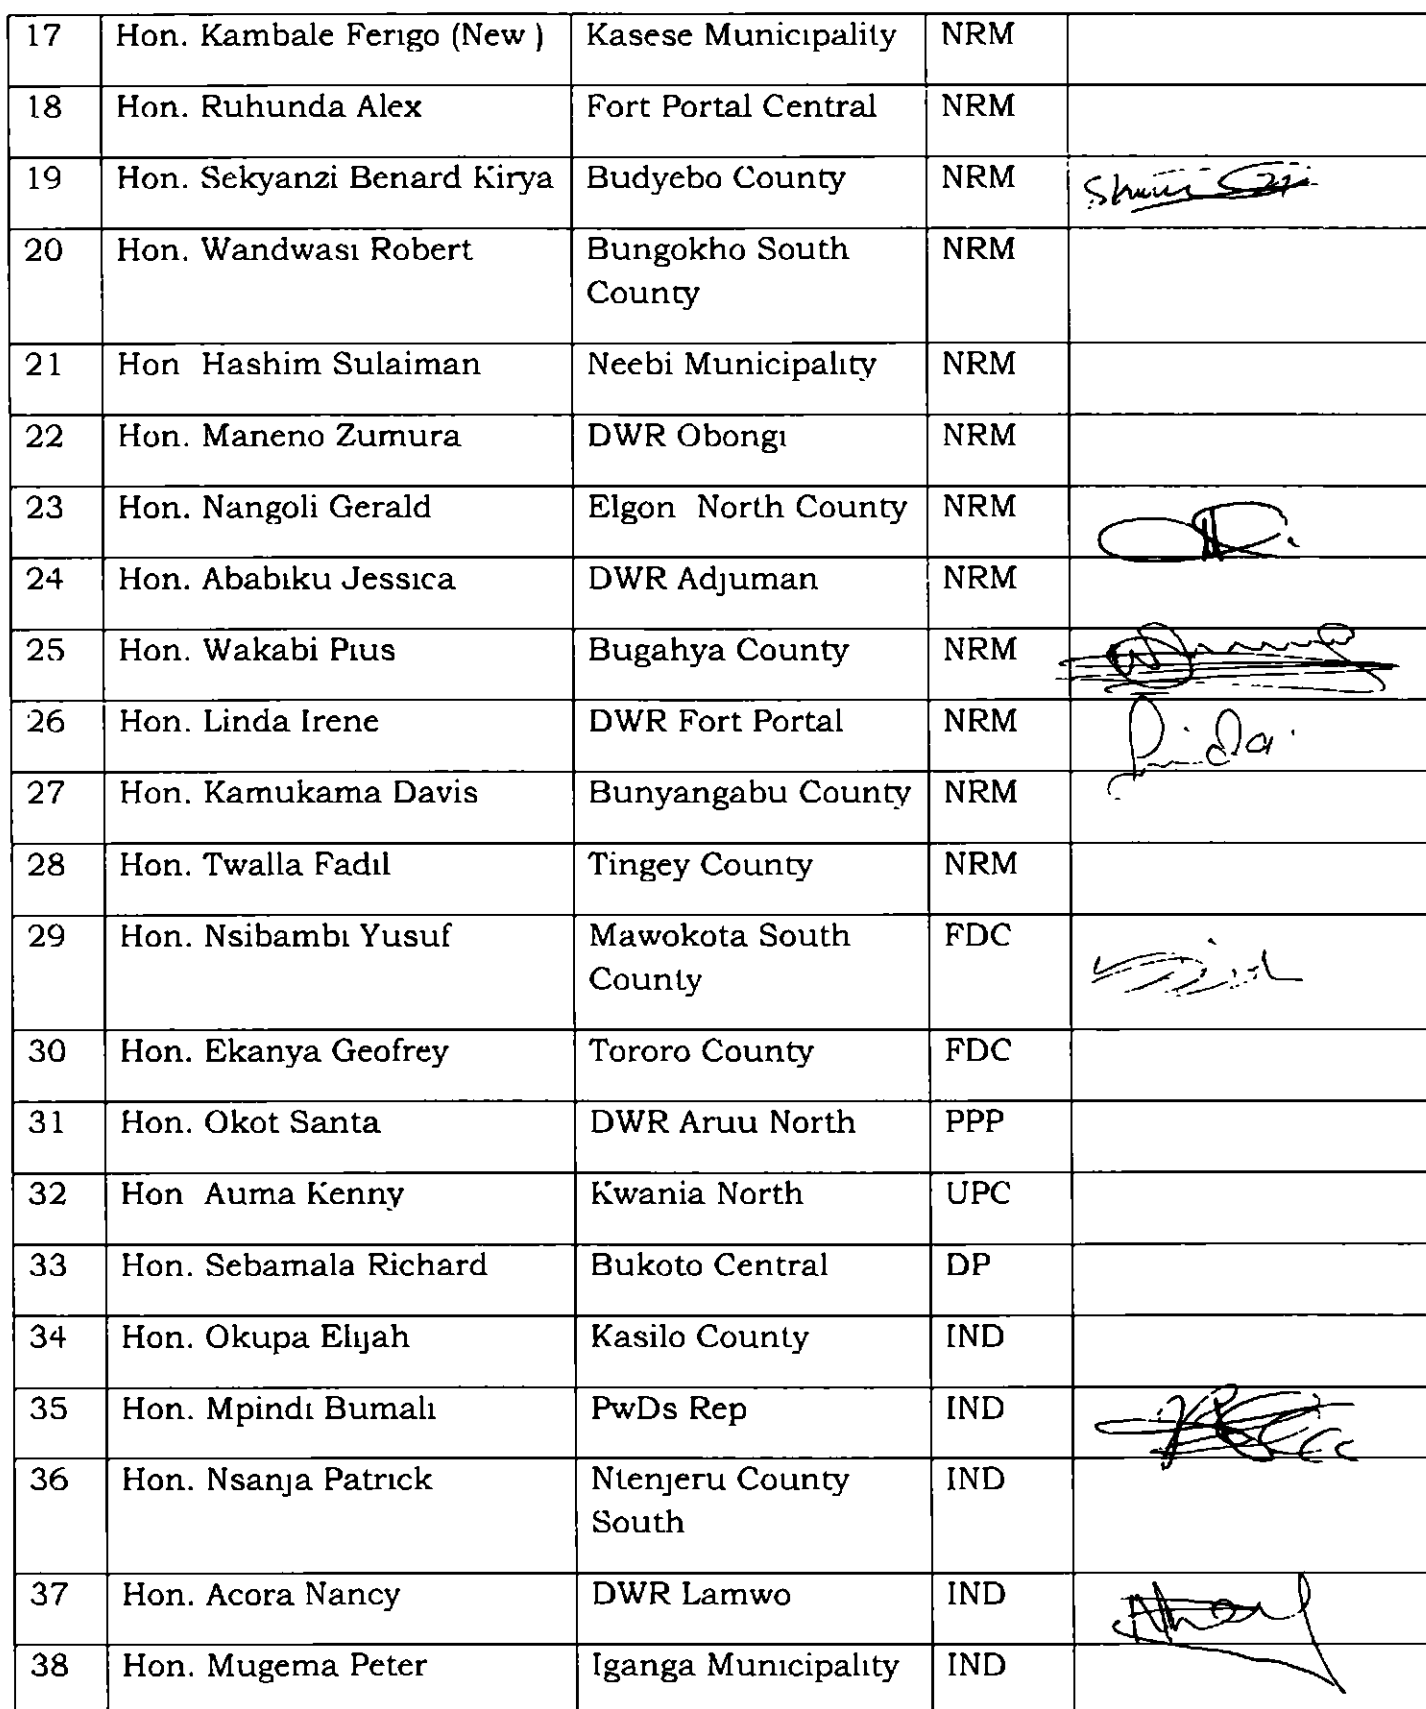 17 Hon. Kambale Ferigo (New ) Kasese Municipality NRM
18 Hon. Ruhunda Alex Fort Portal Central NRM
19 Hon. Sekyanzi Benard Kirya Budyebo County NRM
20 Hon. Wandwasi Robert Bungokho South NRM
County
21 Hon Hashim Sulaiman Neebi Municipality NRM
22 Hon. Maneno Zumura DWR Obongi NRM
23 Hon. Nangoli Gerald Elgon North County NRM
24 Hon. Ababiku Jessica DWR Adjuman NRM
25 Hon. Wakabi Pius Bugahya County NRM
26 Hon. Linda Irene DWR Fort Portal NRM
27 Hon. Kamukama Davis Bunyangabu County NRM
28 Hon. Twalla Fadil Tingey County NRM
29 Hon. Nsibambi Yusuf Mawokota South FDC
County
30 Hon. Ekanya Geofrey Tororo County FDC
31 Hon. Okot Santa DWR Aruu North PPP
32 Hon Auma Kenny Kwania North UPC
33 Hon. Sebamala Richard Bukoto Central DP
34 Hon. Okupa Elijah Kasilo County IND
35 Hon. Mpindi Bumali PwDs Rep IND
36 Hon. Nsanja Patrick Ntenjeru County IND
South
37 Hon. Acora Nancy DWR Lamwo IND
38 Hon. Mugema Peter Iganga Municipality IND